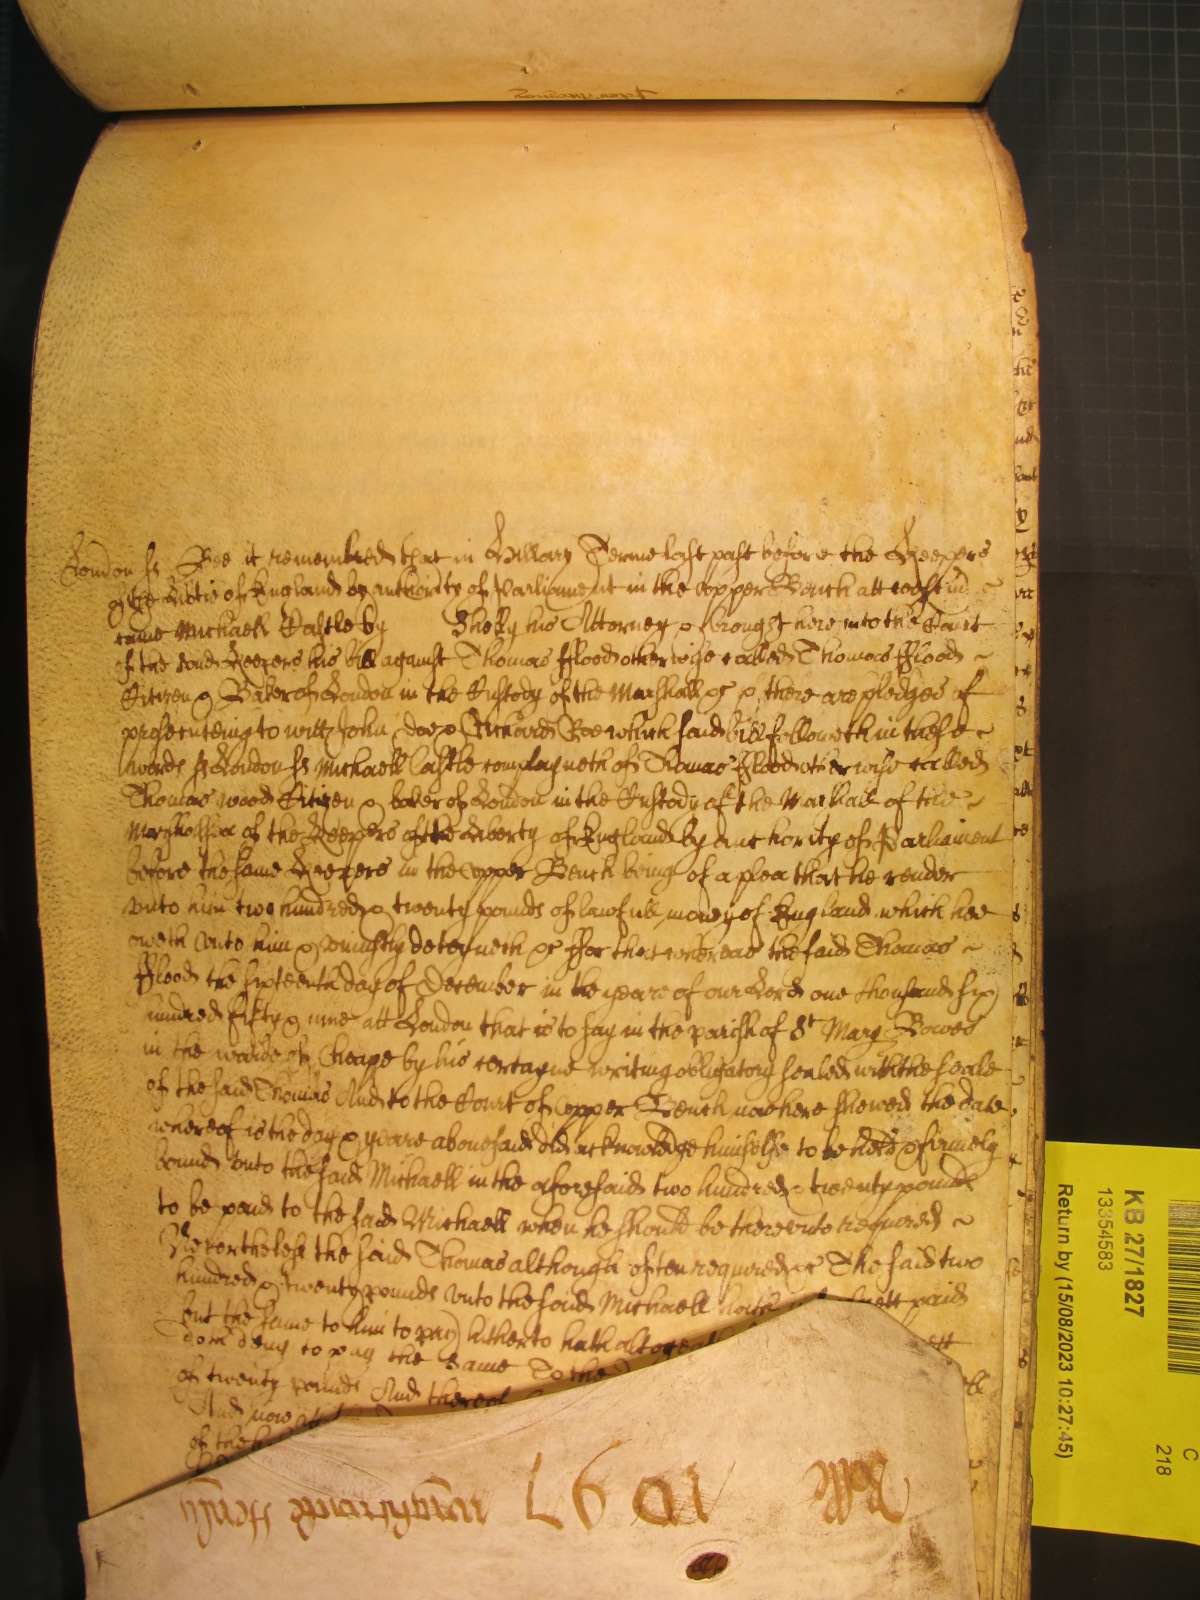 London ss Bee it remembred that in Hillary Terme last past before the Keepers
of the Libtie of England by authority of Parliament in the upper Bench att westm
came Michaell Castle by Shelly his Attorney & brought here into the Court
of the said Keepers his bill against Thomas Flood otherwise called Thomas Flood
Citizen & Baker of London in the Custody of the Marshall &c & there are pledges of
prosecuteing to witt John Doe & Richard Roe which said bill followeth in these
words ss London ss Michaell Castle complayneth of Thomas Flood otherwise called
Thomas wood Citizen & baker of London in the Custody of the Marshall of the
Marshallsea of the Keepers of the Liberty of England by authority of Parliament
before the same Keepers in the upper Bench being of a plea that he render
unto him two hundred & twenty pounds of lawfull money of England which hee
oweth unto him & uniustly deteyneth &c For that whereas the said Thomas
Flood the sixteenth day of December in the yeare of our Lord one thousand six
hundred fifty & nine att London that is to say in the parish of St Mary Bowes
in the warde of Cheape by his certayne writing obligatory sealed with the seale
of the said Thomas And to the Court of upper Bench now here shewed the date
whereof is the day & yeare abovesaid did acknowledge himselfe to be held & firmely
bound unto the said Michaell in the aforesaid two hundred & twenty pounds
to be paid to the said Michaell when he should be thereunto required
Neverthelesse the said Thomas although often required &c The said two
hundred & twenty pounds unto the said Michaell hath paid
but the same to him to pay hitherto hath
doth deny to pay the same To the
of twenty pounds And thereof
And now att
of the
Rolle 1097
KB 27/1827
13354583
Return by (15/08/2023 10:27:45)
C
218